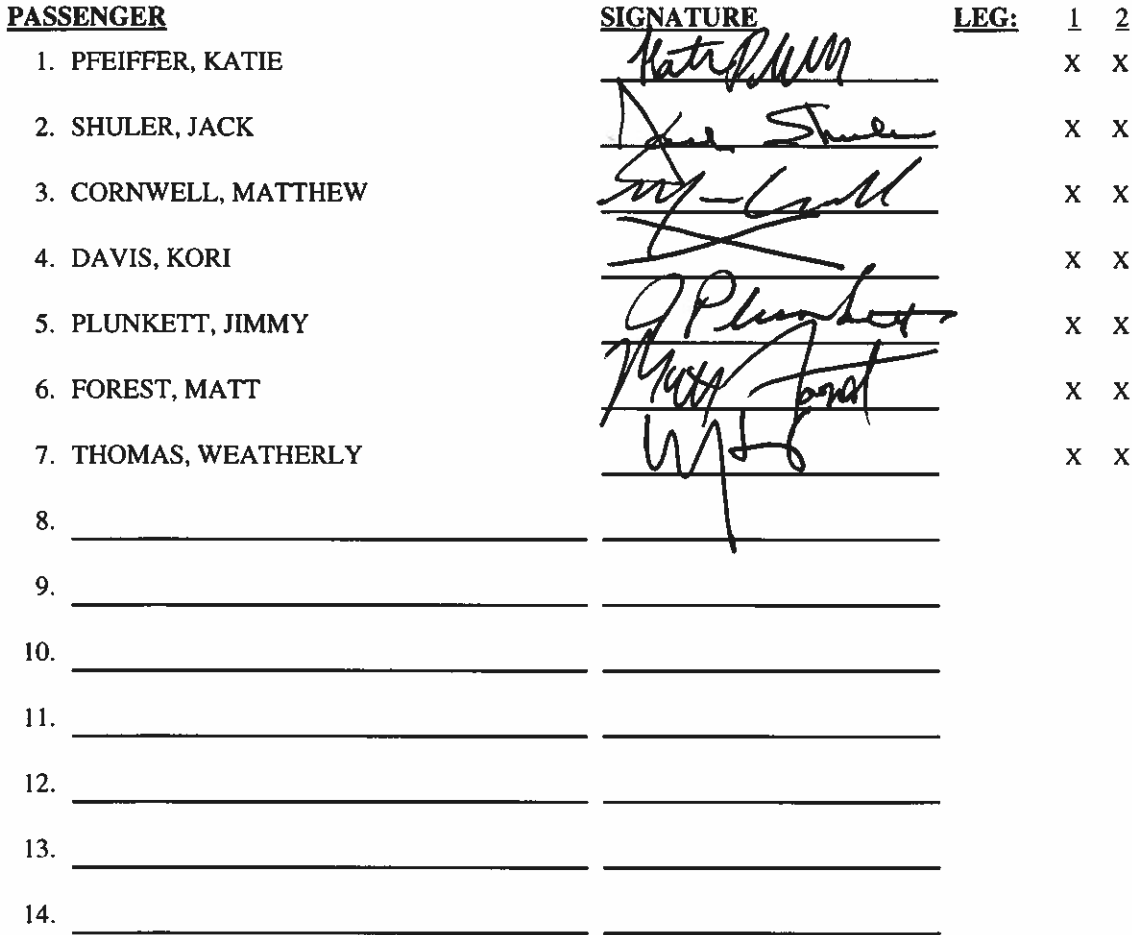 PASSENGER SIGNATURE LEG: 1 2
1. PFEIFFER, KATIE Katie X X
2. SHULER, JACK Jack Shuler X X
3. CORNWELL, MATTHEW X X
4. DAVIS, KORI X X
5. PLUNKETT, JIMMY J Plunkett X X
6. FOREST, MATT Matt Forest X X
7. THOMAS, WEATHERLY X X
8.
9.
10.
11.
12.
13.
14.